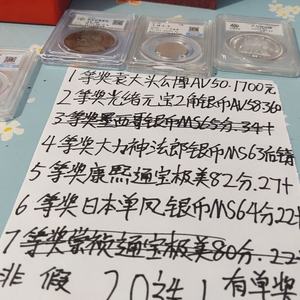 1等奖袁大头公博AV50.1700元
2等奖光绪元宝2角银币AV58360
3等奖墨西哥银币MS65分.34+
4等奖大力神法郎银币MS63后错
5等奖康熙通宝极美82分.27+
6等奖日本单凤银币MS64分22+
7等奖崇祯通宝极美80分.22
非假 有单奖